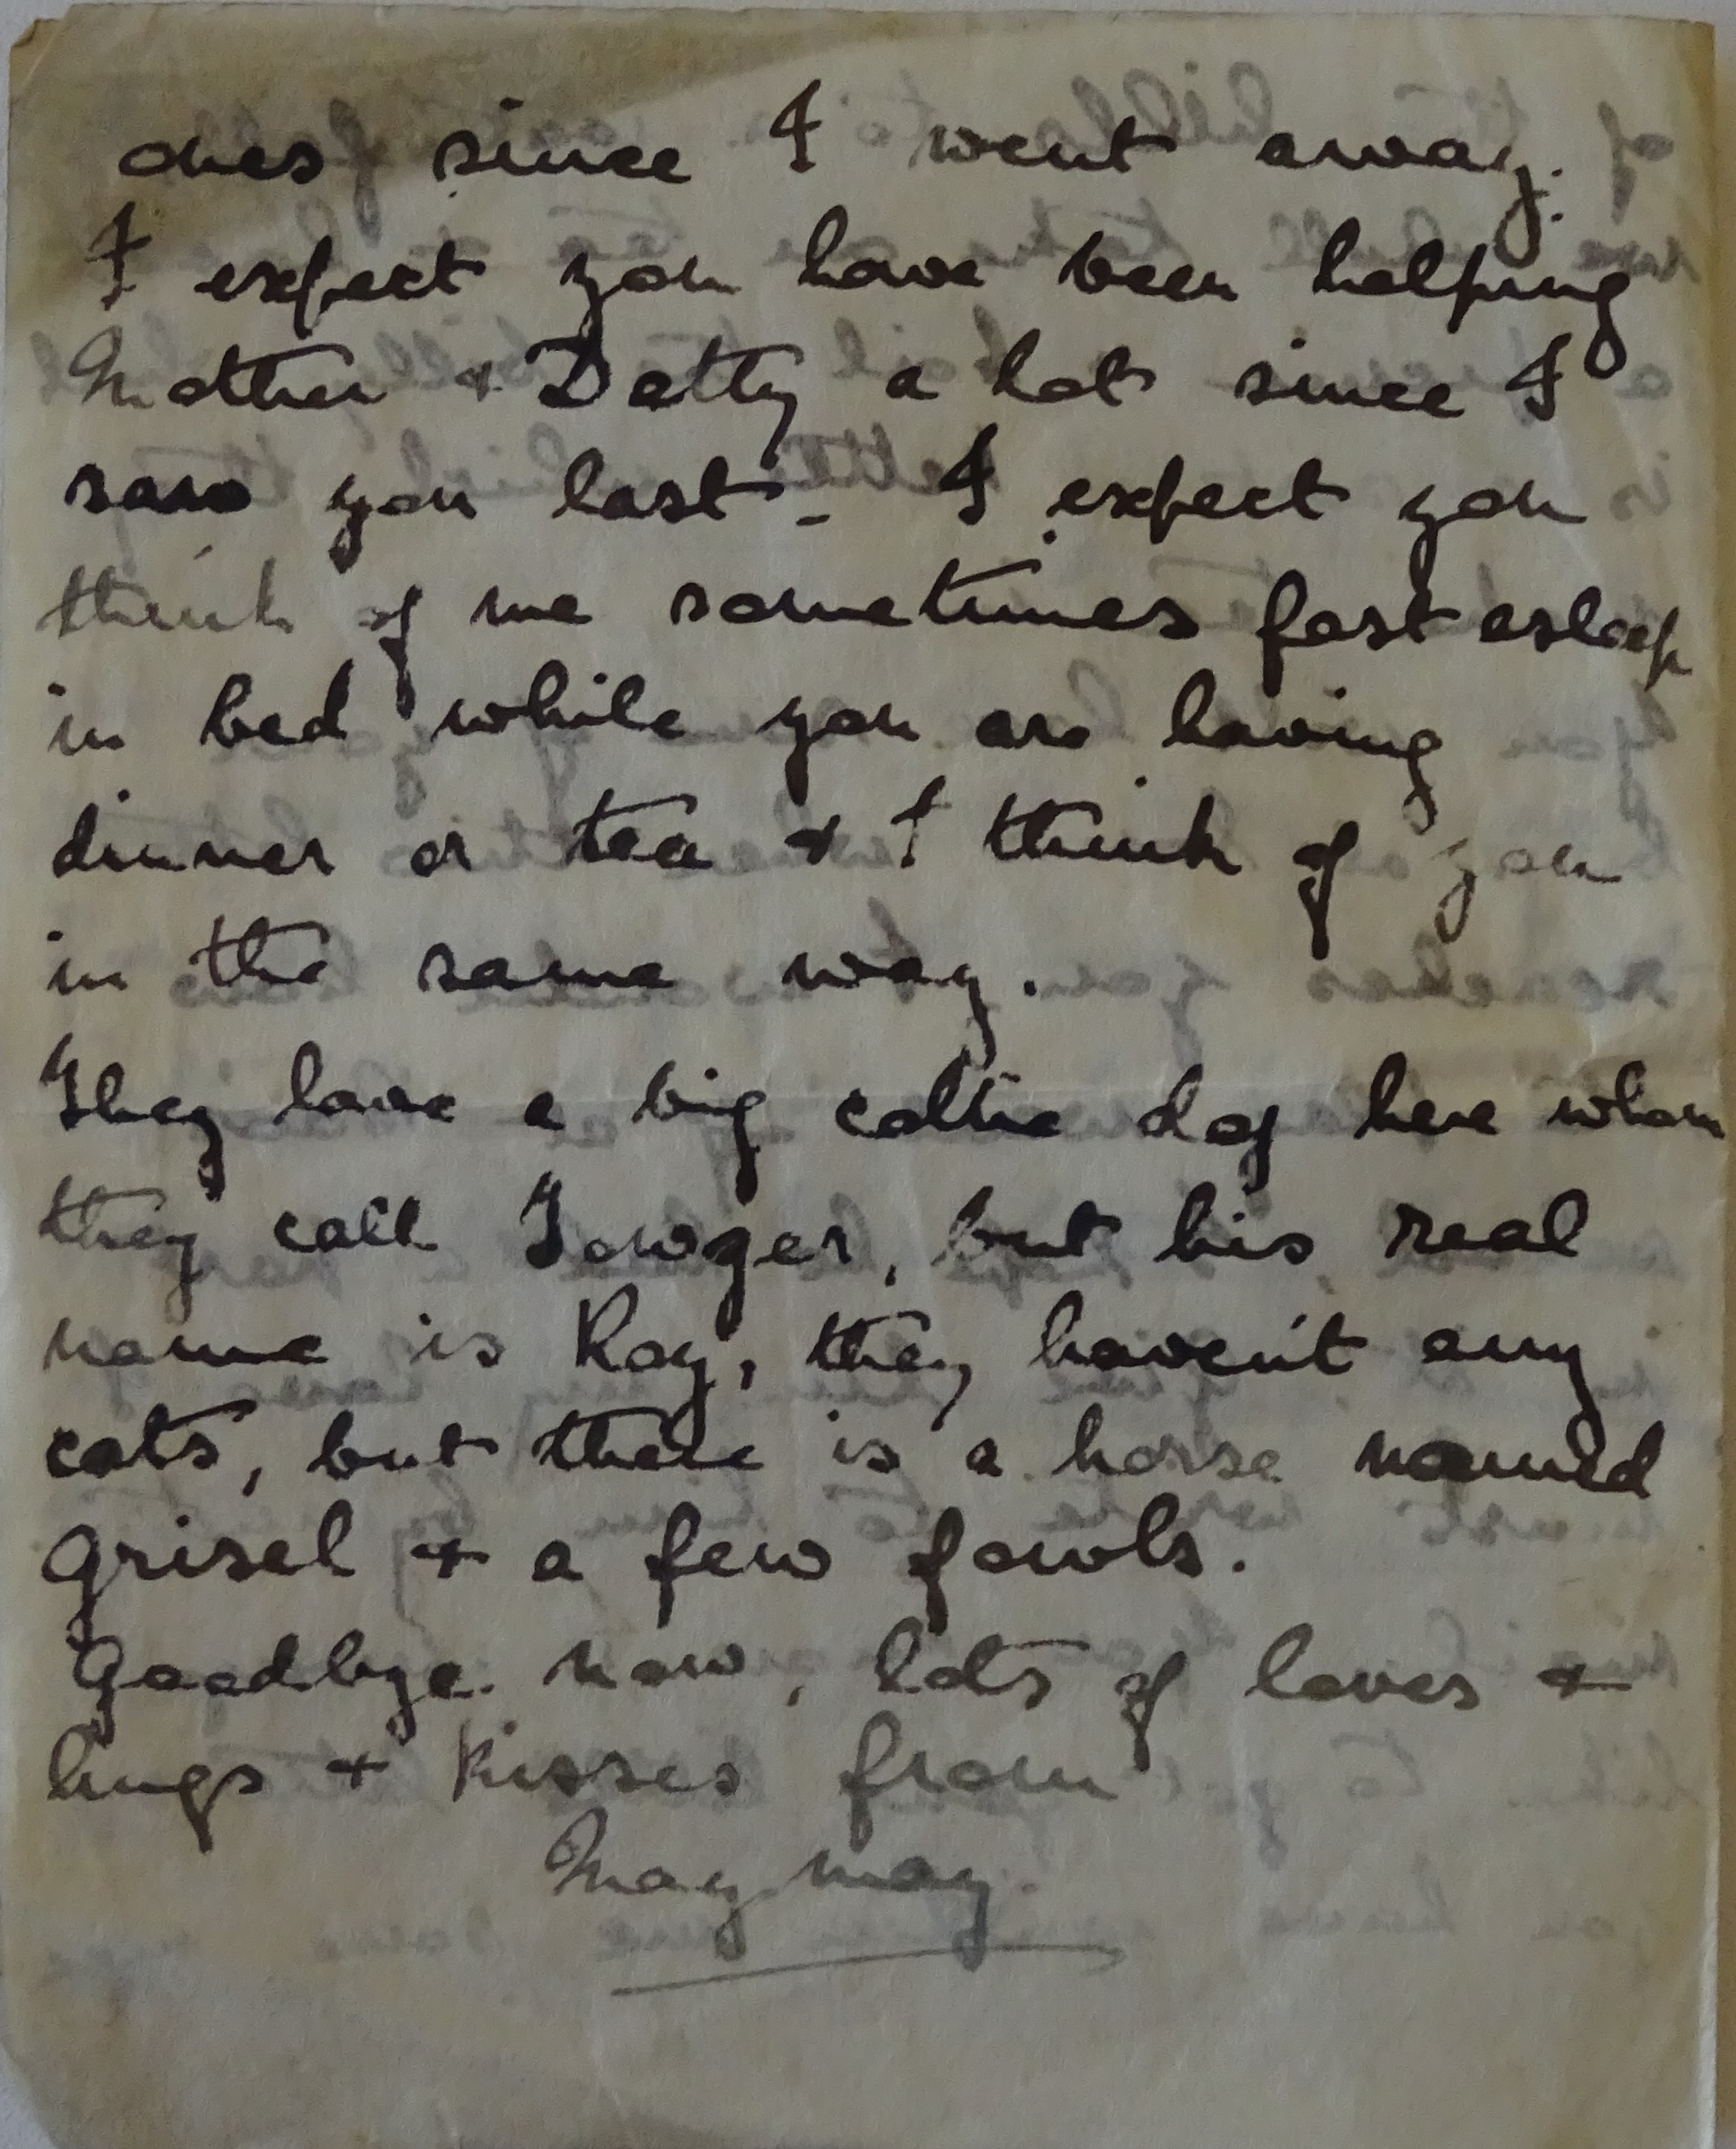 ones since I went away.
I expect you have been helping
Mother & Datty a lot since I
saw you last. I expect you
think of me sometimes fast asleep
in bed while you are having
dinner or tea & I think of you
in the same way.
They have a big collie dog here whom
they call Towzer, but his real
name is Roy, they haven't any
cats, but there is a horse named
Grisel & a few fowls.
Goodbye now, lots of loves &
hugs & kisses from
May may.